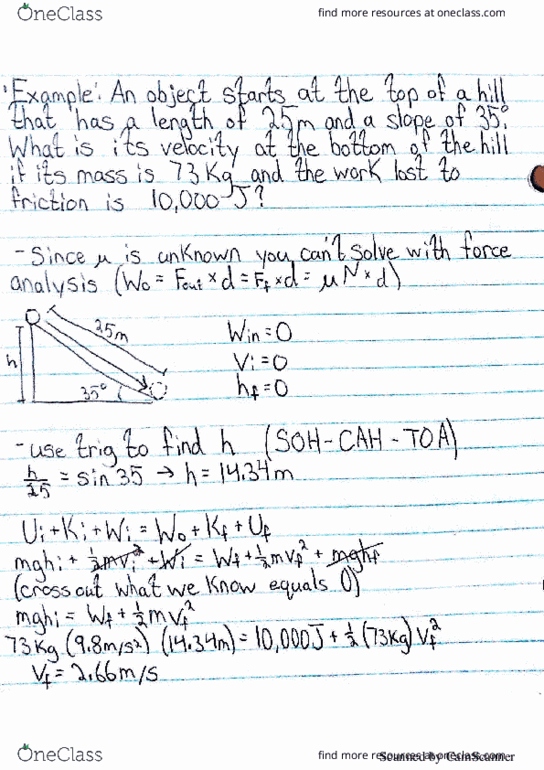 OneClass find more resources at oneclass.com
'Example': An object starts at the top of a hill
that has a length of 25m and a slope of 35°.
What is its velocity at the bottom of the hill
if its mass is 73 Kg and the work lost to
friction is 10,000 J?
- Since μ is unknown you can't solve with force
analysis (Wo = Fout × d = Ff × d = μN × d)
25m
h
35°
Win = 0
Vi = 0
hf = 0
- use trig to find h (SOH - CAH - TOA)
h/25 = sin 35 → h = 14.34 m
Ui + Ki + Wi = Wo + Kf + Uf
mghi + ½mvi² + Wi = Wf + ½mvf² + mghf
(cross out what we know equals 0)
mghi = Wf + ½mvf²
73 Kg (9.8m/s²) (14.34m) = 10,000J + ½ (73Kg) Vf²
Vf = 2.66 m/s
OneClass find more resources at oneclass.com
Scanned by CamScanner